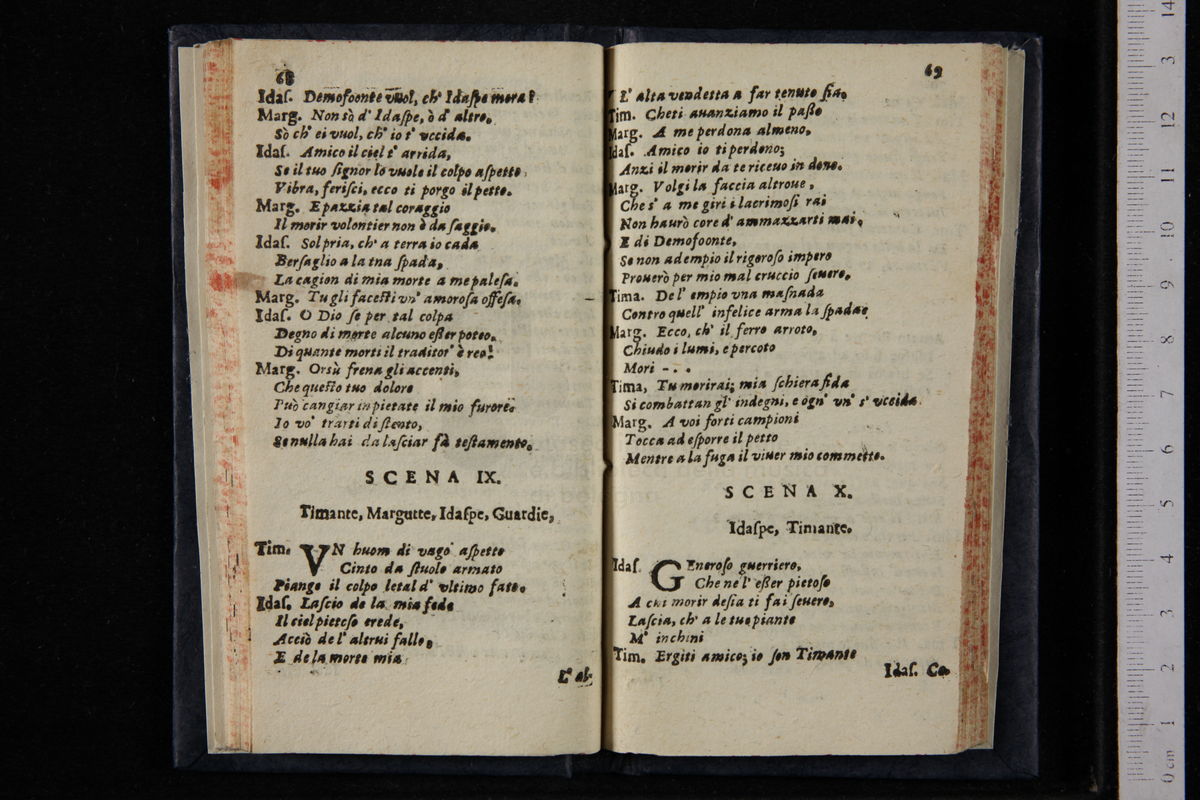 68
Idaſ. Demofoonte vuol, ch' Idaſpe mora?
Marg. Non sò d' Idaſpe, ò d' altro.
Sò ch' ei vuol, ch' io t' vccida.
Idaſ. Amico il ciel t' arrida,
Se il tuo ſignor lo vuole il colpo aſpetto,
Vibra, feriſci, ecco ti porgo il petto.
Marg. E pazzia tal coraggio
Il morir volontier non è da ſaggio.
Idaſ. Sol pria, ch' a terra io cada
Berſaglio a la tna ſpada,
La cagion di mia morte a me paleſa.
Marg. Tu gli faceſti vn' amoroſa offeſa.
Idaſ. O Dio ſe per tal colpa
Degno di morte alcuno eſſer poteo.
Di quante morti il traditor' è reo!
Marg. Orsù frena gli accenti,
Che queſto tuo dolore
Può cangiar in pietate il mio furore.
Io vo' trarti di ſtento,
Se nulla hai da laſciar fà teſtamento.
SCENA IX.
Timante, Margutte, Idaſpe, Guardie,
Tim. VN huom di vago aſpetto
Cinto da ſtuolo armato
Piange il colpo letal d' vltimo fato.
Idaſ. Laſcio de la mia fede
Il ciel pietoſo erede,
Acciò de l' altrui fallo,
E de la morte mia
L' al-
69
L' alta vendetta a far tenuto ſia.
Tim. Cheti auanziamo il paſſo
Marg. A me perdona almeno,
Idaſ. Amico io ti perdono;
Anzi il morir da te riceuo in dono.
Marg. Volgi la faccia altroue,
Che s' a me giri i lacrimoſi rai
Non haurò core d' ammazzarti mai.
E di Demofoonte,
Se non adempio il rigoroſo impero
Prouerò per mio mal cruccio ſeuero.
Tima. De l' empio vna maſnada
Contro quell' infelice arma la ſpada
Marg. Ecco, ch' il ferro arroto,
Chiudo i lumi, e percoto
Mori - . .
Tima, Tu morirai; mia ſchiera fida
Si combattan gl' indegni, e ogn' vn' s' vccida.
Marg. A voi forti campioni
Tocca ad eſporre il petto
Mentre a la fuga il viuer mio commetto.
SCENA X.
Idaſpe, Timante.
Idaſ. GEneroſo guerriero,
Che ne l' eſſer pietoſo
A chi morir deſia ti fai ſeuero,
Laſcia, ch' a le tue piante
M' inchini
Tim. Ergiti amico; io ſon Timante
Idaſ. Co-